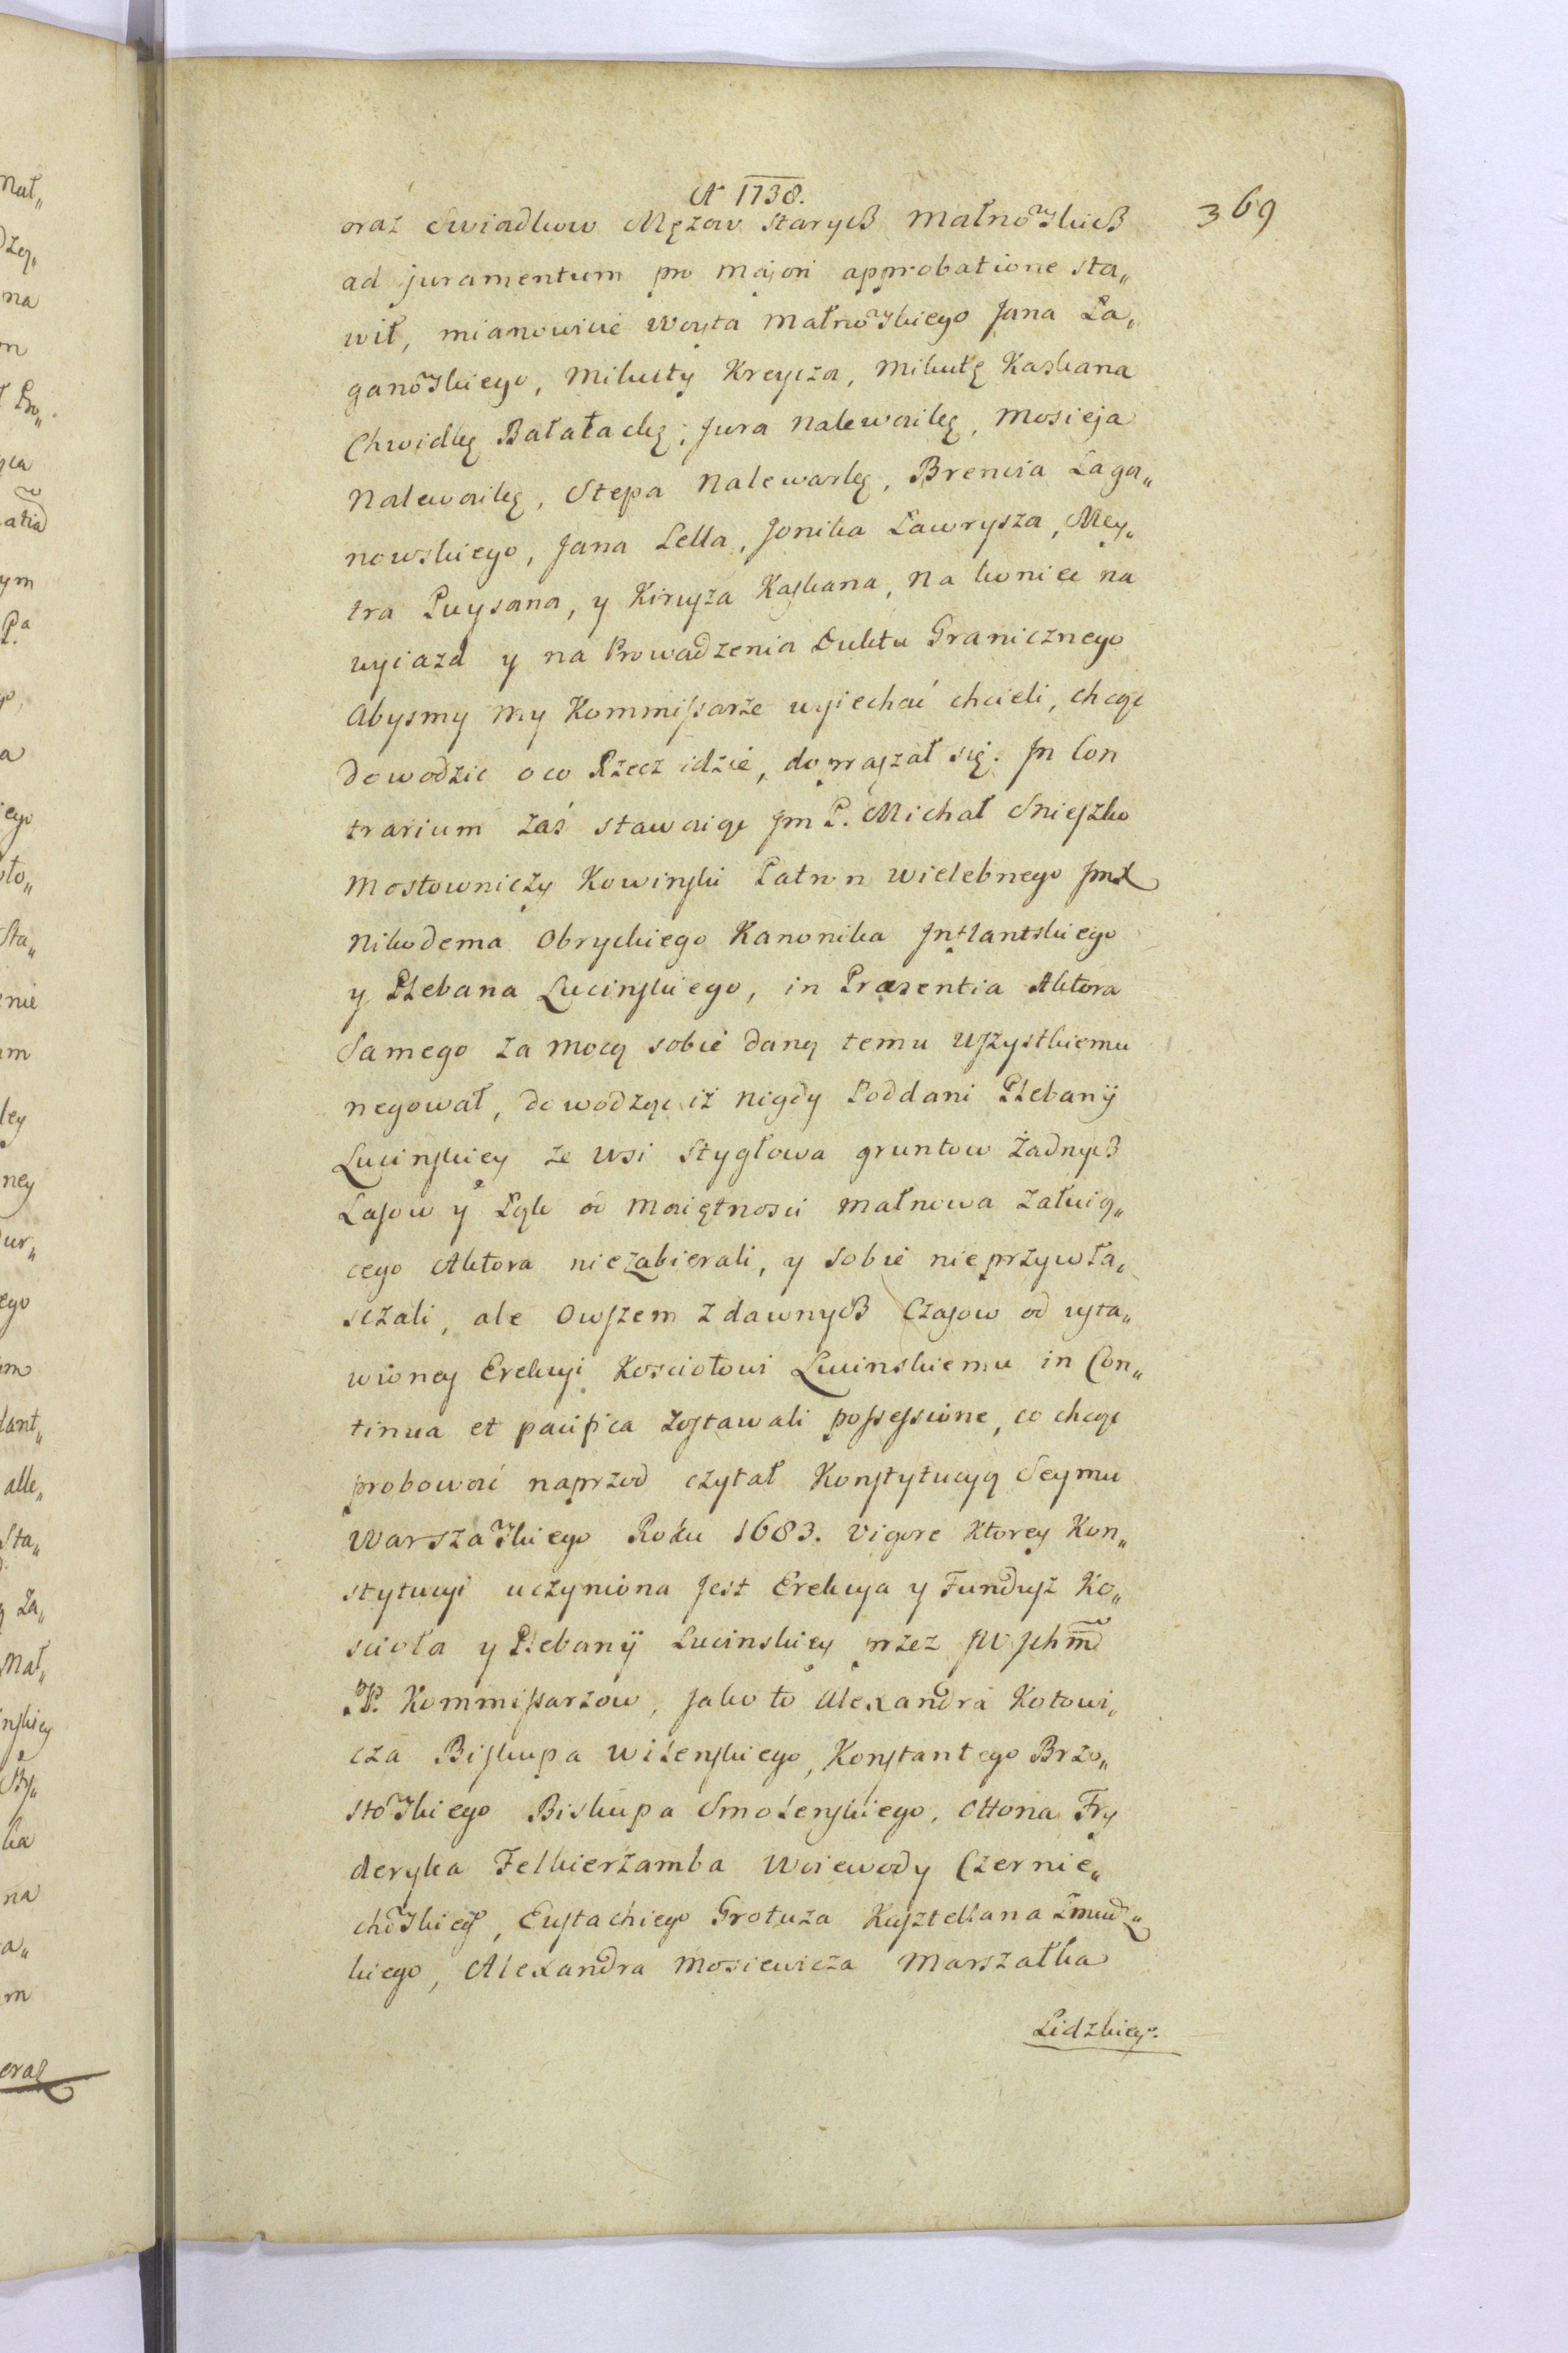 A 1738.
369
oraz swiadkow Mężow starych Małnowskich
ad juramentum pro majori approbatione sta„
wił, mianowicie Woyta Małnowskiego Jana Ła„
ganowskiego, Mikuty Kreycza, Mikutę Kaskana
Chwidkę Bałatackę, Jura Nalewaikę, Mosieja
Nalewaikę, Stepa Nalewaykę, Brencia Łaga„
nowskiego, Jana Lella, Jonika Ławrysza, Mey„
tra Puysana, y Kirysza Kaskana, Na koniec na
wyiazd y na Prowadzenia Duktu Granicznego
Abysmy My Kommissarze wyiechać chcieli, chcąc
dowodzic o co Rzecz idzie, dopraszał się. In Con
trarium zaś stawaiąc Jm P. Michał Snieszko
Mostowniczy Kowinski Patron Wielebnego Jmx
Nikodema Obryckiego Kanonika Inflantskiego
y Plebana Lucinskiego, in Præsentia Aktora
Samego za mocą sobie daną temu wszystkiemu
negował, dowodząc iż nigdy Poddani Plebanij
Lucinskiey ze wsi Stygłowa gruntow żadnych
Lasow y Łąk od Maiętnosci Małnowa żałuią„
cego Aktora niezabierali, y sobie nieprzywła„
sczali, ale owszem z dawnych Czasow od usta„
wioney Erekcyi Kosciołowi Lucinskiemu in Con„
tinua et pacifica zostawali possessione, co chcąc
probować naprzod czytał Konstytucyą Seymu
Warszawskiego Roku 1683. Vigore Ktorey Kon„
stytucyi uczyniona jest Erekcya y Fundusz Ko„
scioła y Plebanij Lucinskiey przez JW Jchm̃
P. Kommissarzow, jako to Alexandra Kotowi„
cza Biskupa Wilenskiego, Konstantego Brzo„
stowskiego Biskupa Smolenskiego, Ottona Fry
deryka Felkierzamba Woiewody Czernie„
chowskieg°, Eustachiego Grotuza Kasztellana Zmudz„
kiego, Alexandra Mosiewicza Marszałka
Lidzkieg°.